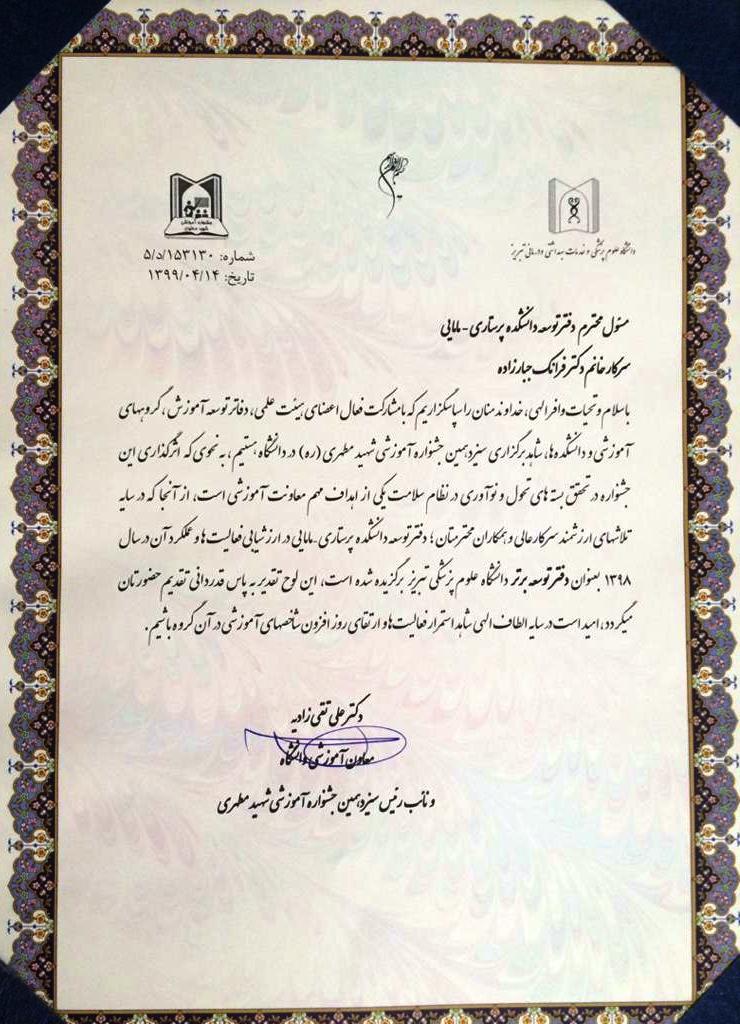 دانشگاه علوم پزشکی و خدمات بهداشتی و درمانی تبریز
جشنواره آموزشی
شهید مطهری
شماره: ۵/د/۱۵۳۱۳۰
تاریخ: ۱۳۹۹/۰۴/۱۴
مسئول محترم دفتر توسعه دانشکده پرستاری - مامایی
سرکار خانم دکتر فرانک جبارزاده
باسلام و تحیات وافر الهی، خداوند منان را سپاسگزاریم که با مشارکت فعال اعضای هیئت علمی، دفاتر توسعه آموزش، گروههای
آموزشی و دانشکده ها، شاهد برگزاری سیزدهمین جشنواره آموزشی شهید مطهری (ره) در دانشگاه هستیم، به نحوی که اثرگذاری این
جشنواره در تحقق بسته های تحول و نوآوری در نظام سلامت یکی از اهداف مهم معاونت آموزشی است، از آنجا که در سایه
تلاشهای ارزشمند سرکارعالی و همکاران محترمتان؛ دفتر توسعه دانشکده پرستاری-مامایی در ارزشیابی فعالیت ها و عملکرد آن در سال
۱۳۹۸ بعنوان دفتر توسعه برتر دانشگاه علوم پزشکی تبریز برگزیده شده است، این لوح تقدیر به پاس قدردانی تقدیم حضورتان
میگردد، امید است در سایه الطاف الهی شاهد استمرار فعالیت ها و ارتقای روز افزون شاخصهای آموزشی در آن گروه باشیم.
دکتر علی تقی زادیه
معاون آموزشی دانشگاه
و نائب رئیس سیزدهمین جشنواره آموزشی شهید مطهری